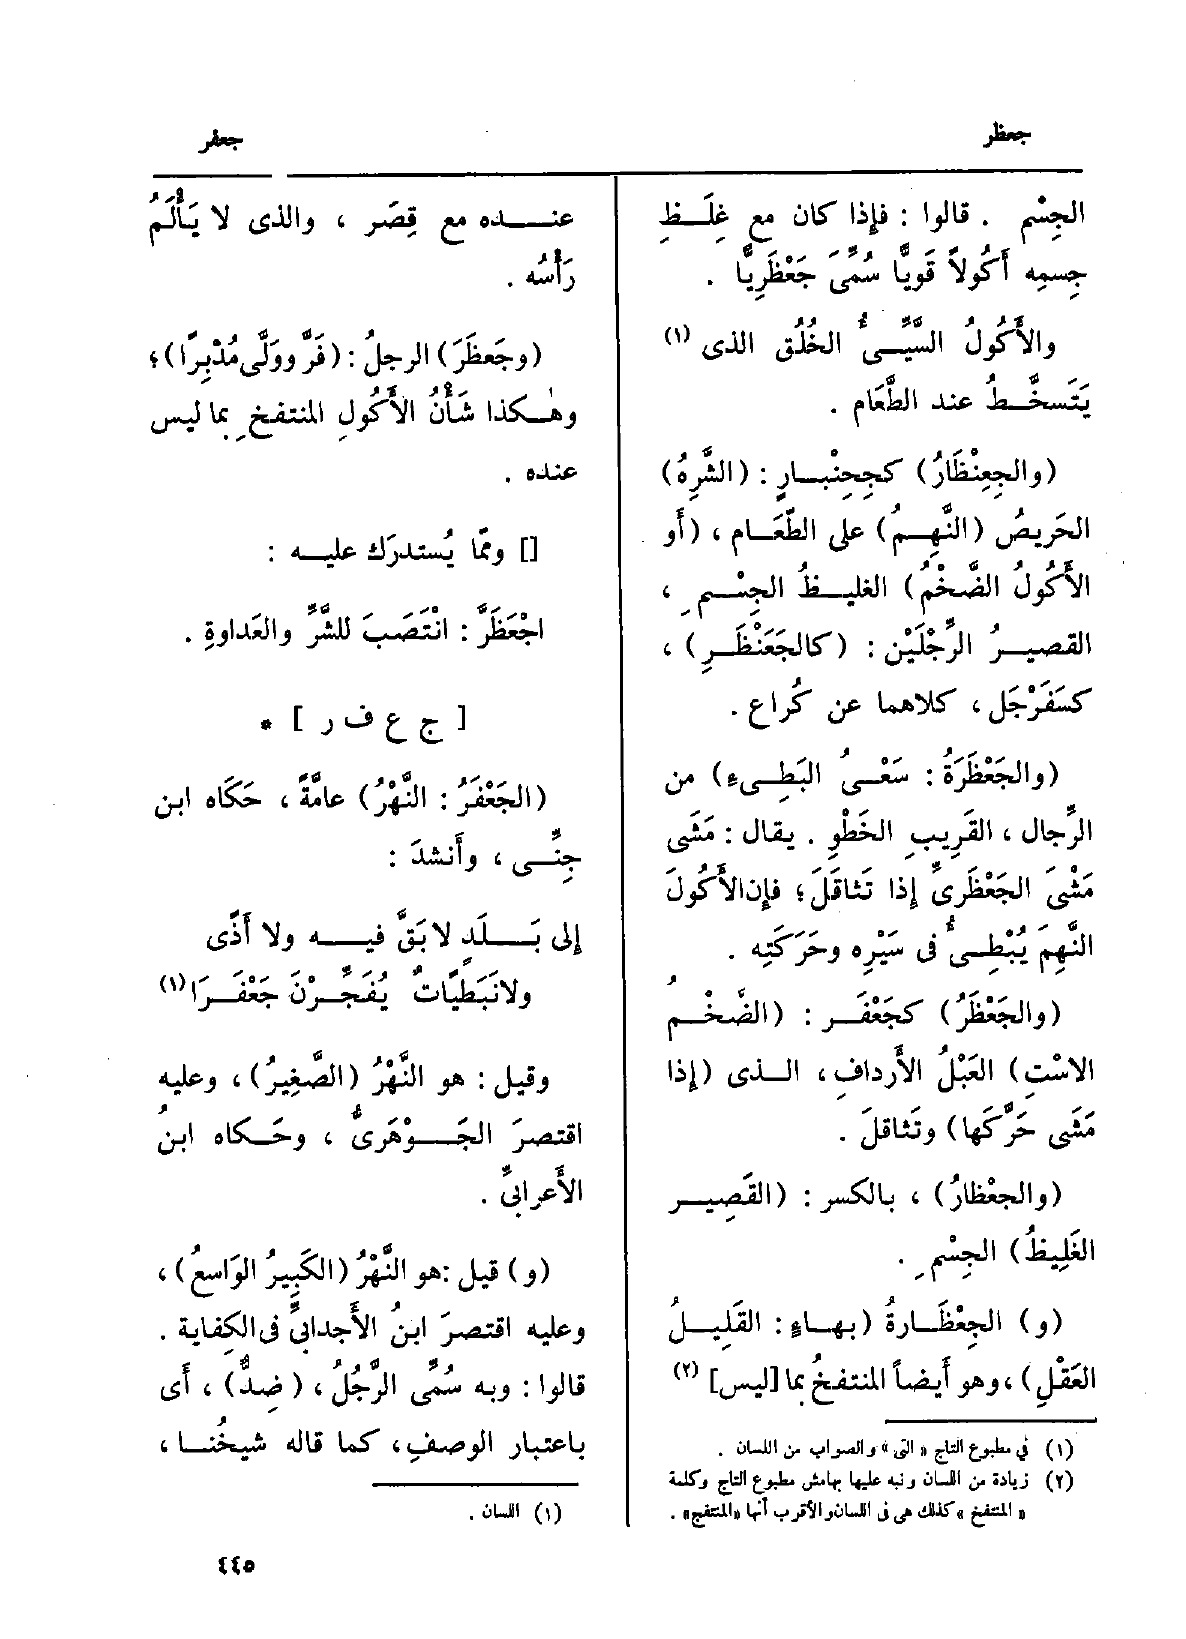 جعظر
جعفر
الجِسْم . قالوا : فإذا كان مع غِلَظِ
جِسمِه أَكُولاً قَويًّا سُمِّىَ جَعْظَرِيًّا .
والأَكُولُ السَّيِّىءُ الخُلُق الذى (١)
يَتَسخَّطُ عند الطَّعَام .
(والجِعِنْظَارُ) كجِحِنْبارٍ : (الشَّرِهُ)
الحَريصُ (النَّهِمُ) على الطَّعَام ، (أَو
الأَكُولُ الضَّخْمُ) الغليظُ الجِسْمِ ،
القصيرُ الرِّجْلَيْن : (كالجَعَنْظَرِ) ،
كسَفَرْجَل ، كلاهما عن كُراع .
(والجَعْظَرَةُ : سَعْىُ البَطِىءِ) من
الرِّجال ، القَرِيبِ الخَطْوِ . يقال : مَشَى
مَشْىَ الجَعْظَرىِّ إذا تَثاقَلَ ؛ فإن الأَكُولَ
النَّهِمَ يُبْطِىءُ فى سَيْرِه وحَرَكَتِه .
(والجَعْظَرُ) كجَعْفَر : (الضَّخْمُ
الاسْتِ) العَبْلُ الأَردافِ ، الذى (إذا
مَشَى حَرَّكَها) وتَثاقلَ .
(والجعْظارُ) ، بالكسر : (القَصِير
الغَلِيظُ) الجِسْمِ .
(و) الجِعْظَارةُ (بهاءٍ : القَلِيلُ
العَقْلِ) ، وهو أَيضاً المنتفخُ بما [ليس] (٢)
(١) في مطبوع التاج « التى » والصواب من اللسان .
(٢) زيادة من اللسان ونبه عليها بهامش مطبوع التاج وكلمة
« المنتفخ » كذلك هى فى اللسان والأقرب أنها «المنتفج» .
عنده مع قِصَر ، والذى لا يَأْلَمُ
رَأْسُه .
(وجَعظَرَ) الرجلُ : (فَرَّ ووَلَّى مُدْبِرًا) ؛
وهٰكذا شَأْنُ الأَكُولِ المنتفخِ بما ليس
عنده .
[] وممّا يُستدرَك عليه :
اجْعَظَرَّ : انْتَصَبَ للشَّرِّ والعَداوةِ .
[ ج ع ف ر ] *
(الجَعْفَرُ : النَّهْرُ) عامَّةً ، حَكَاه ابن
جِنِّى ، وأَنشدَ :
إلى بَلَدٍ لا بَقَّ فيه ولا أَذًى
ولا نَبَطِيّاتٌ يُفَجِّرْنَ جَعْفَرَا (١)
وقيل : هو النَّهْرُ (الصَّغِيرُ) ، وعليه
اقتصرَ الجَوْهَرىُّ ، وحَكاه ابنُ
الأَعرابىِّ .
(و) قيل : هو النَّهْرُ (الكَبِيرُ الوَاسعُ) ،
وعليه اقتصرَ ابنُ الأَجدابىِّ فى الكِفاية .
قالوا : وبه سُمِّىَ الرَّجُلُ ، (ضِدٌّ) ، أَى
باعتبار الوصفِ ، كما قاله شيخُنا ،
(١) اللسان .
٤٤٥